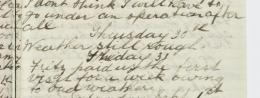 I dont think I will have to
go under an operation after
all
Thursday 30th
Weather still rough
Friday 31
Fritz paid us the first
visit for a week owing
to bad weather
1st